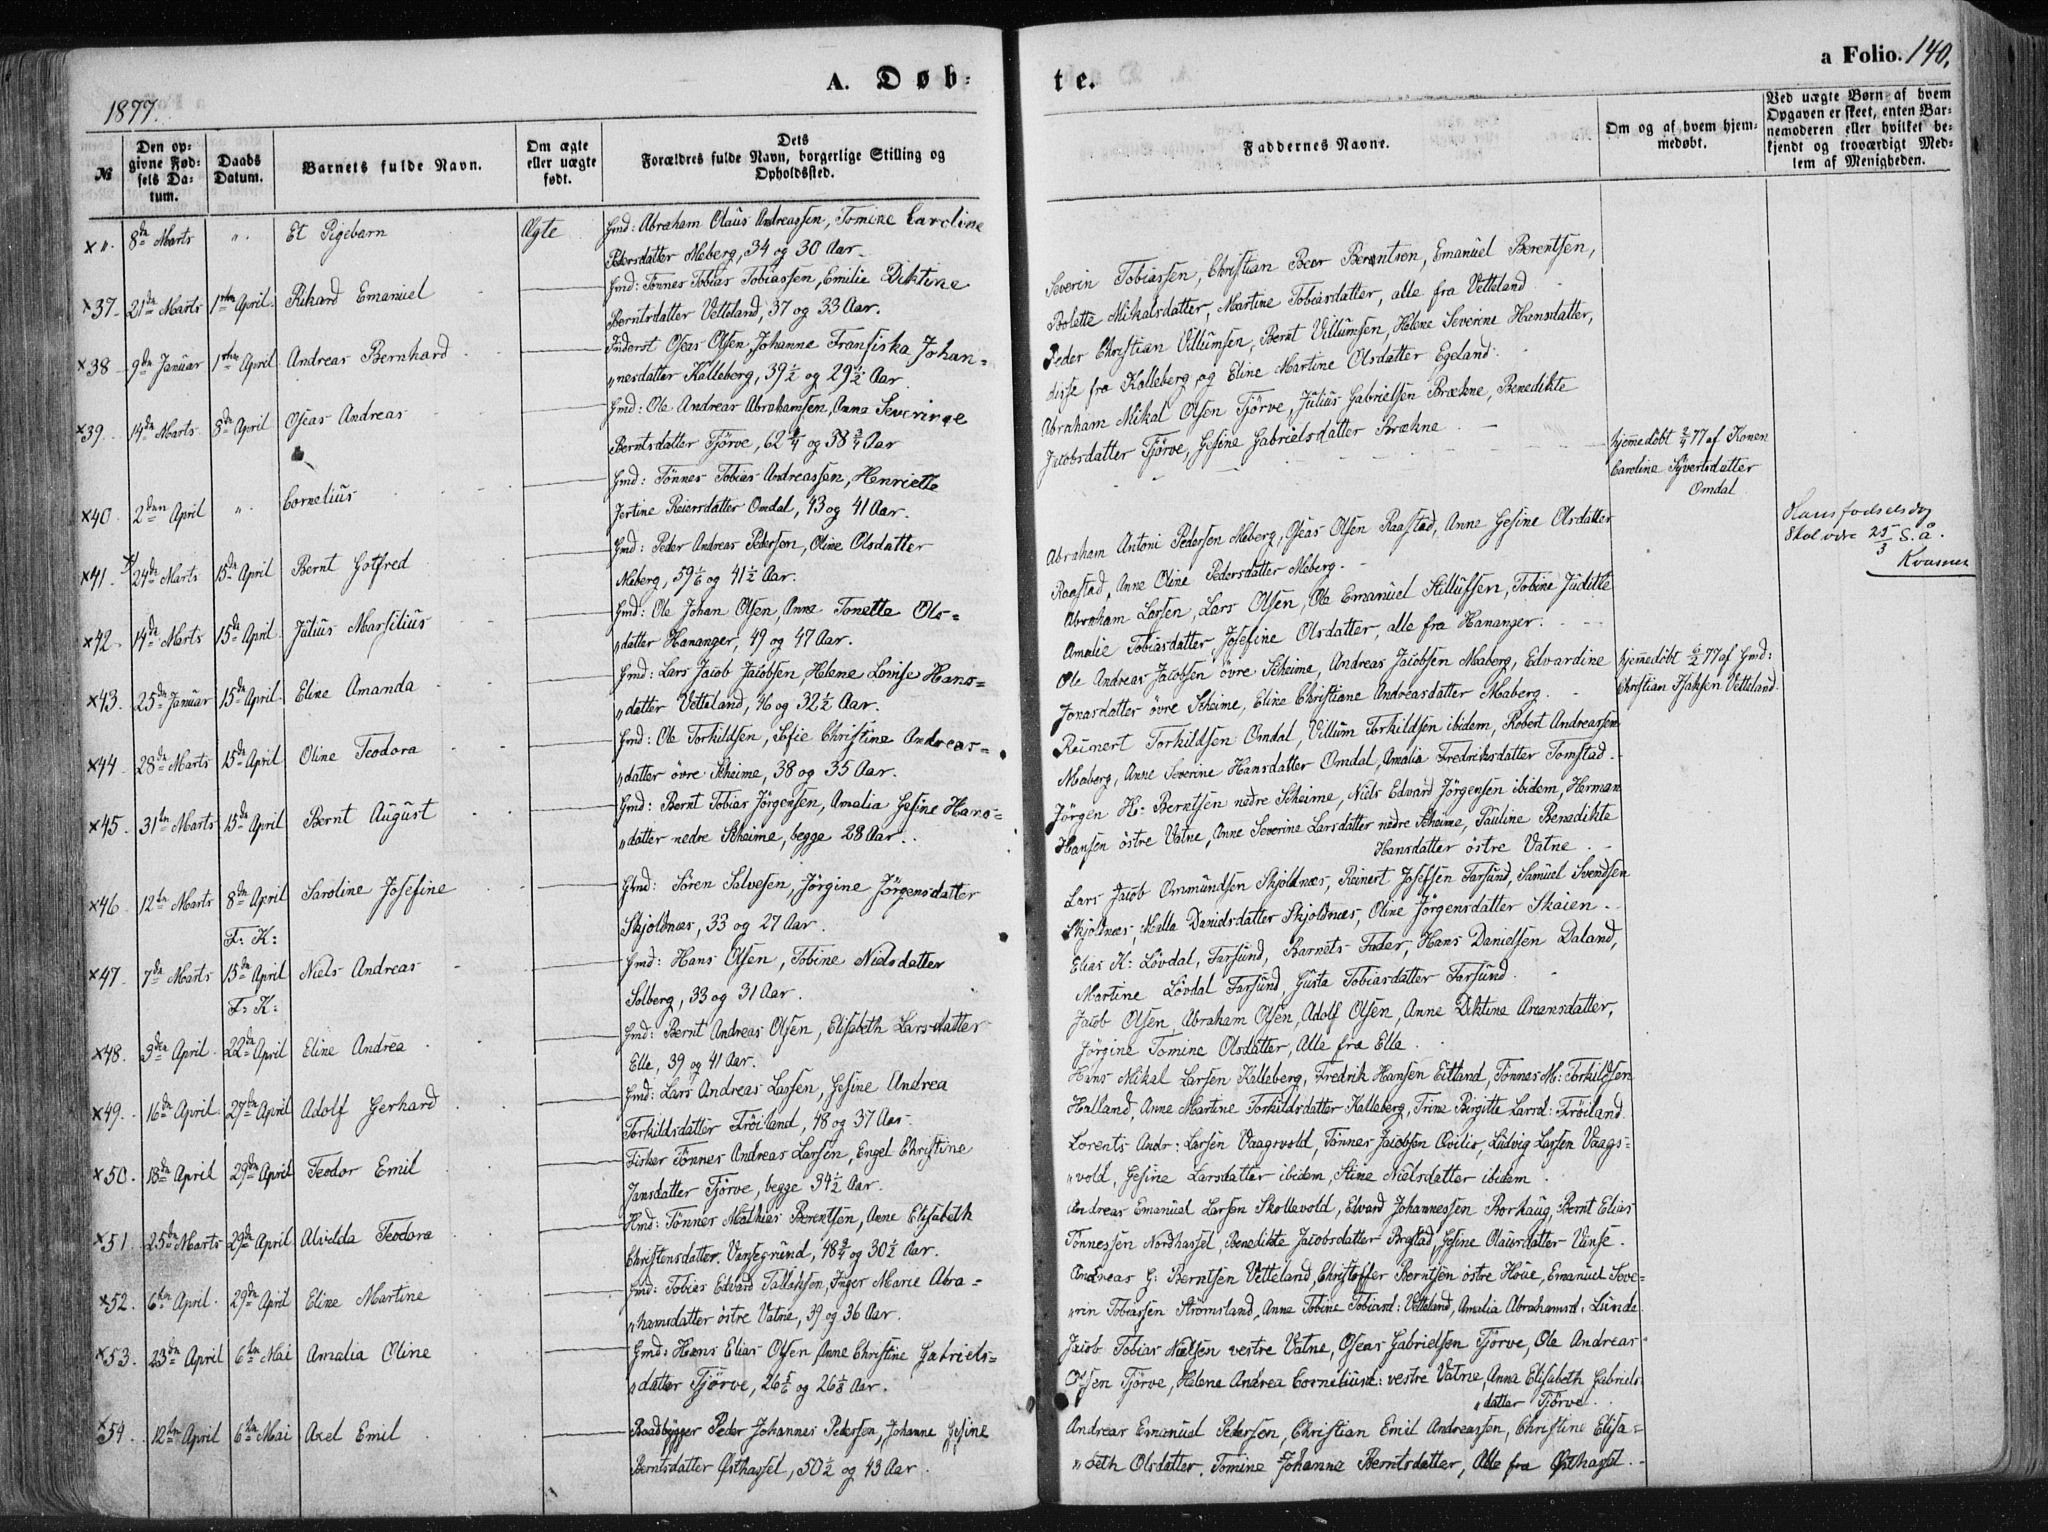 1877.
A. Døb-
te.
a Folio. 140.
№
Den opgivne Fødsels Datum.
Daabs Datum.
Barnets fulde Navn.
Om ægte eller uægte født.
Dets Forældres fulde Navn, borgerlige Stilling og Opholdssted.
Faddernes Navne.
Om og af hvem hjemmedøbt.
Ved uægte Børn af hvem Opgaven er skeet, enten Barnemoderen eller hvilket bekjendt og troværdigt Medlem af Menigheden.
x ". 8de Marts ". Et Pigebarn Ægte Gmd: Abraham Olaus Andreassen, Tomine Caroline
Pedersdatter Meberg, 34 og 30 Aar.
x37. 21de Marts 1ste April. Rikard Emanuel Gmd: Tönnes Tobias Tobiassen, Emilie Diktine
Berntsdatter Vetteland, 37 og 33 Aar.
Severin Tobiassen, Christian Beer Berentsen, Emanuel Berentsen,
Bolette Mikalsdatter, Martine Tobiasdatter, alle fra Vetteland
x38 9de Januar 1ste April Andreas Bernhard Inderst Oseas Olsen, Johanne Fransiska Johan=
"nesdatter Kalleberg, 39 ½ og 29 ½ Aar.
Peder Christian Villumsen, Bernt Villumsen, Helene Severine Hansdatter,
disse fra Kalleberg og Eline Martine Olsdatter Egeland.
x39. 14de Marts 8de April Oseas Andreas Gmd: Ole Andreas Abrahamsen, Anna Severine
Berntsdatter Tjörve, 62 ¾ og 38 ¾ Aar
Abraham Mikal Olsen Tjörve, Julius Gabrielsen Brækne, Benedikte
Jacobsdatter Tjörve, Gesine Gabrielsdatter Brækne.
x40. 2den April ". Cornelius Gmd: Tönnes Tobias Andreassen, Henriette
Jertine Reiersdatter Omdal, 43 og 41 Aar.
hjemmedöbt 2/4 77 af Konen
Caroline Syvertsdatter
Omdal
x41. 24de Marts 15de April Bernt Gotfred Gmd: Peder Andreas Pedersen, Oline Olsdatter
Meberg, 59 ⅙ og 41 ½ Aar.
Abraham Antoni Pedersen Meberg, Oseas Olsen Raastad, Anne Gesine Olsdatter
Raastad, Anne Oline Pedersdatter Meberg.
Hans fødselsdag
skal være 25/3 s.å.
Kvasnes
x42. 14de Marts 15de April Julius Marsilius Gmd: Ole Johan Olsen, Anne Tonette Ols=
"datter Hananger, 49 og 47 Aar.
Abraham Larsen, Lars Olsen, Ole Emanuel Stillufsen, Tobine Juditte
Amalie Tobiasdatter, Josefine Olsdatter, alle fra Hananger.
x43. 25de Januar 15de April Eline Amanda Gmd: Lars Jacob Jacobsen, Helene Lovise Hans=
"datter Vetteland, 46 og 32 ½ Aar.
Ole Andreas Jacobsen övre Skeime, Andreas Jacobsen Maberg, Edvardine
Jonasdatter övre Skeime, Eline Christiane Andreasdatter Maberg.
hjemmedöbt 6/2 77 af Gmd:
Christian Isaksen Vetteland.
x44. 28de Marts 15de April Oline Teodora Gmd: Ole Torkildsen, Sofie Christine Andreas=
"datter övre Skeime, 38 og 35 Aar.
Reinert Torkildsen Omdal, Villum Torkildsen ibidem, Robert Andreassen
Maberg, Anne Severine Hansdatter Omdal, Amalia Fredriksdatter Tomstad.
x45. 31te Marts 15de April Bernt August Gmd: Bernt Tobias Jörgensen, Amalia Gesine Hans=
"datter nedre Skeime, begge 28 Aar.
Jörgen H: Berntsen nedre Skeime, Niels Edvard Jörgensen ibidem, Herman
Hansen östre Vatne, Anne Severine Larsdatter nedre Skeime, Pauline Benedikte
Hansdatter östre Vatne.
x46. 12te Marts 8de April F: K: Saroline Josefine Gmd: Sören Salvesen, Jörgine Jörgensdatter
Skjoldnæs, 33 og 27 Aar.
Lars Jacob Ommundsen Skjoldnæs, Reinert Josefsen Farsund, Samuel Svendsen
Skjoldnæs, Malla Danielsdatter Skjoldnæs, Oline Jörgensdatter Skaien.
x47. 7de Marts 15de April F: K: Niels Andreas Gmd: Hans Olsen, Tobine Nielsdatter
Solberg, 33 og 31 Aar.
Elias K: Lövdal, Farsund, Barnets Fader, Hans Danielsen Daland,
Martine Lövdal Farsund, Gusta Tobiasdatter Farsund.
x48. 3die April. 22de April Eline Andrea Gmd: Bernt Andreas Olsen, Elisabeth Larsdatter
Elle, 39 og 41 Aar.
Jacob Olsen, Abraham Olsen, Adolf Olsen, Anne Diktine Arensdatter,
Jörgine Tomine Olsdatter, Alle fra Elle.
x49. 16de April. 27de April Adolf Gerhard Gmd: Lars Andreas Larsen, Gesine Andrea
Torkildsdatter Fröiland, 48 og 37 Aar.
Hans Mikal Larsen Kalleberg, Fredrik Hansen Eitland, Tönnes M: Torkildsen
Halland, Anne Martine Torkildsdatter Kalleberg, Trine Birgitte Larsd: Fröiland.
x50. 18de April 29de April Teodor Emil Fisker Tönnes Andreas Larsen, Engel Christine
Jansdatter Tjörve, begge 34 ½ Aar.
Lorents Andr: Larsen Vaagsvold, Tönnes Jacobsen Qvilio, Ludvig Larsen Vaags=
"vold, Gesine Larsdatter ibidem, Stine Nielsdatter ibidem.
x51. 25de Marts 29de April Alvilda Teodora Hmd: Tönnes Mathias Berentsen, Anne Elisabeth
Christensdatter. Vansegrund, 48 ¾ og 30 ½ Aar.
Andreas Emanuel Larsen Skollevold, Edvard Johannessen Borhaug, Bernt Elias
Tönnessen Nordhassel, Benedikte Jacobsdatter Brastad, Gesine Olausdatter Vanse.
x52. 6te April. 29de April Eline Martine Gmd: Tobias Edvard Tallaksen, Inger Marie Abra=
"hamsdatter östre Vatne, 39 og 36 Aar.
Andreas G: Berntsen Vetteland, Christoffer Berntsen östre Haue, Emanuel Seve=
"rin Tobiassen Strömsland, Anne Tobine Tobiasd: Vetteland, Amalia Abrahamsd: Lunde.
x53. 23de April 6te Mai Amalia Oline Gmd: Hans Elias Olsen, Anne Christine Gabriels=
"datter Tjörve, 26 ⅚ og 26 ⅛ Aar.
Jacob Tobias Nielsen vestre Vatne, Oseas Gabrielsen Tjörve, Ole Andreas
Olsen Tjörve, Helene Andrea Corneliusd: vestre Vatne, Anna Elisabeth Gabriels
"datter Tjörve.
x54. 12te April 6te Mai Axel Emil Baadbygger Peder Johannes Pedersen, Johanne Gesine
Berntsdatter Østhassel, 50 ½ og 43 Aar.
Andreas Emanuel Pedersen, Christian Emil Andreassen, Christine Elisa=
"beth Olsdatter, Tomine Johanna Berntsdatter, Alle fra Østhassel.